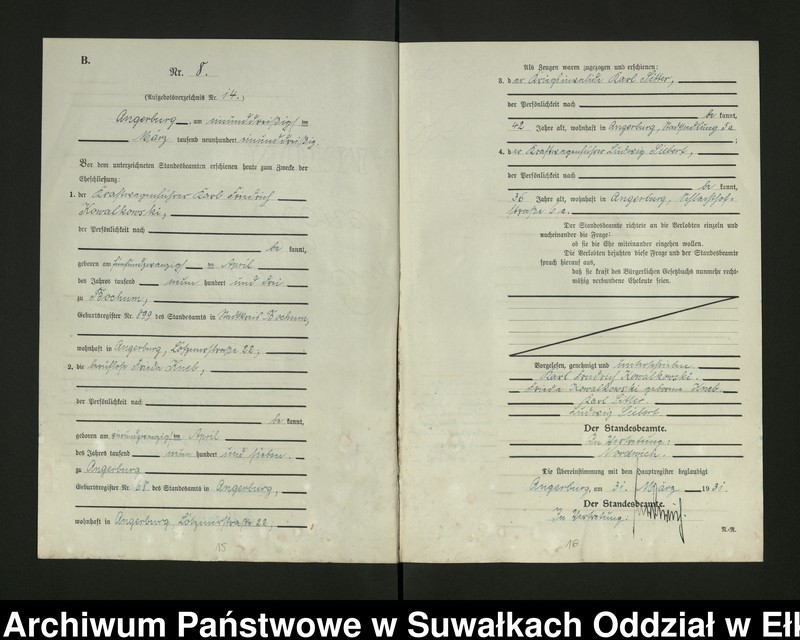 B.
Nr. 8.
(Aufgebotsverzeichnis Nr. 14.)
Angerburg, am einunddreißig ten
März tausend neunhundert einunddreißig.
Vor dem unterzeichneten Standesbeamten erschienen heute zum Zwecke der
Eheschließung:
1. der Kraftwagenführer Karl Friedrich
Kowalkowski,
der Persönlichkeit nach
be kannt,
geboren am fünfundzwanzig ten April
des Jahres tausend neun hundert und drei
zu Bochum,
Geburtsregister Nr. 899 des Standesamts in Bochum,
wohnhaft in Angerburg, Lötzenerstraße 22;
2. die berufslose Frieda
der Persönlichkeit nach
be kannt,
geboren am ten April
des Jahres tausend neun hundert und sieben.
zu Angerburg
Geburtsregister Nr. 68 des Standesamts in Angerburg,
wohnhaft in Angerburg Lötzenerstraße 22;
15
Als Zeugen waren zugezogen und erschienen:
3. der Karl
der Persönlichkeit nach
be kannt,
42 Jahre alt, wohnhaft in Angerburg, Stadtsiedlung 3a;
4. der Kraftwagenführer Ludwig Seibert,
der Persönlichkeit nach
be kannt,
36 Jahre alt, wohnhaft in Angerburg, Schlachthof-
straße 6a.
Der Standesbeamte richtete an die Verlobten einzeln und
nacheinander die Frage:
ob sie die Ehe miteinander eingehen wollen.
Die Verlobten bejahten diese Frage und der Standesbeamte
sprach hierauf aus,
daß sie kraft des Bürgerlichen Gesetzbuchs nunmehr recht-
mäßig verbundene Eheleute seien.
Vorgelesen, genehmigt und unterschrieben.
Karl Friedrich Kowalkowski.
Frieda Kowalkowski geborene
Karl
Ludwig Seibert.
Der Standesbeamte.
In Vertretung:
Nordwich.
Die Übereinstimmung mit dem Hauptregister beglaubigt
Angerburg, am 31. März 1931
Der Standesbeamte.
In Vertretung:
N.-R.
16
Archiwum Państwowe w Suwałkach Oddział w Eł